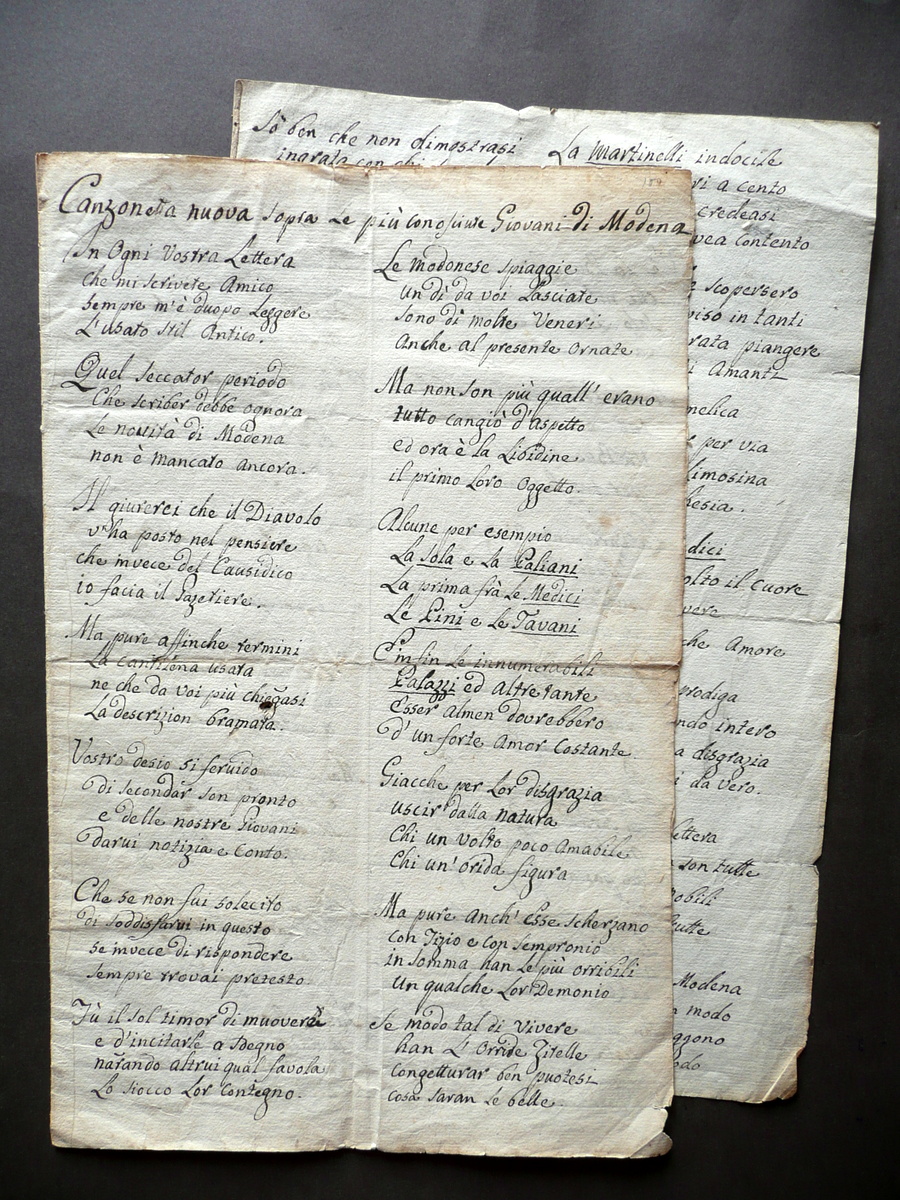 Canzoneta nuova sopra Le più conosiute Giovani di Modena
In Ogni Vostra Lettera
che mi scrivete Amico
sempre m'è duopo Leggere
L'usato stil Antico.
Quel seccator periodo
Che scriver debbe ognora
Le novità di Modena
non è mancato ancora.
Il giurerci che il Diavolo
v'ha posto nel pensiere
che invece del Causidico
io facia il Gazetiere.
Ma pure affinche termini
La cantilena usata
ne che da voi più chieggasi
La descrizion bramata.
Vostro desio si fervido
di secondar son pronto
e delle nostre Giovani
darvi notizia e Conto.
Che se non fui solecito
di soddisfarvi in questo
se invece di rispondere
sempre trovai pretesto
Fù il sol timor di muoverle
e d'incitarle a sdegno
narando altrui qual favola
Lo siocco Lor Contegno.
Le modonese spiaggie
un dì da voi Lasciate
sono di molte Veneri
Anche al presente Ornate
Ma non son più quall' erano
tutto cangiò d'aspetto
ed ora è la Libidine
il primo Loro Oggetto.
Alcune per esempio
La Sola e La Galiani
La prima frà Le Medici
Le Pini e Le Tavani
E infin Le innumerabili
Palazzi ed altre tante
Esser almen dovrebbero
d'un forte Amor Costante
Giacche per Lor disgrazia
uscir dalla natura
Chi un volto poco Amabile
Chi un'orida figura
Ma pure Anch' Esse scherzano
con Tizio e con sempronio
in somma han Le più orribili
un qualche Lor Demonio
Se modo tal di Vivere
han L'Orride Zitelle
congetturar ben puotesi
cosa saran Le belle.
Sò ben che non dimostrasi
ingrata con chi
La Martinelli indocile
ri a cento
credeasi
vea contento
scopersero
viso in tanti
rata piangere
i Amanti
melica
per via
limosina
hesia.
dici
olto il Cuore
vere
che Amore
prodiga
ndo intero
a disgrazia
i da vero.
ettera
son tutte
obili
tutte
Modena
n modo
ggono
odo